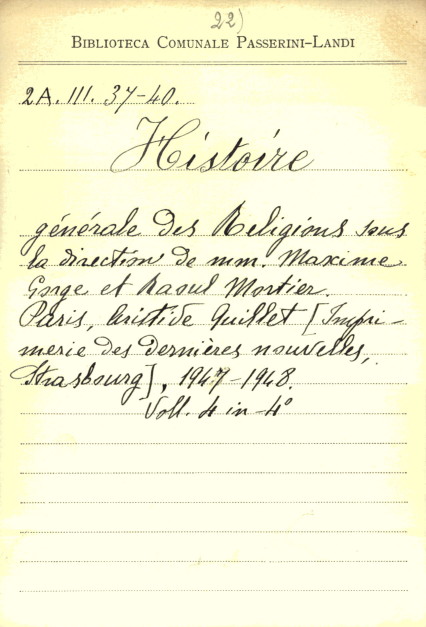 22)
BIBLIOTECA COMUNALE PASSERINI-LANDI
2A. III. 37-40.
Histoire
générale des Religions sous
la direction de mm. Maxime
Gorge et Raoul Mortier.
Paris, Aristide Quillet [Impri-
merie des dernières nouvelles,
Strasbourg], 1947-1948.
Voll. 4 in-4°